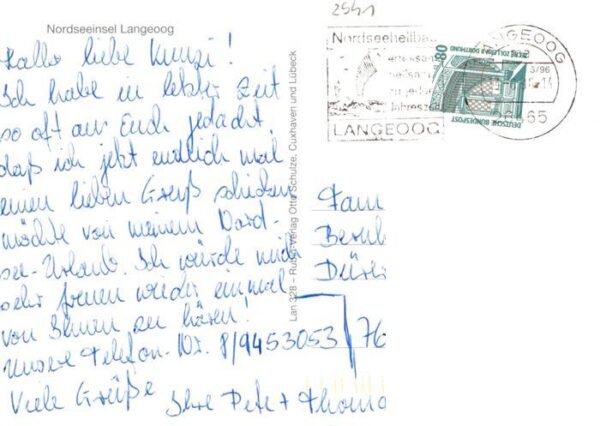 Nordseeinsel Langeoog
2541
Hallo liebe Kunzi!
Ich habe in letzter Zeit
so oft an Euch gedacht,
daß ich jetzt endlich mal
einen lieben Gruß schicken
möchte von meinem Nord-
see-Urlaub. Ich würde mich
sehr freuen wieder einmal
von Ihnen zu hören!
Unsere Telefon-Nr. 8/9453053
Viele Grüße Ihre Peter + Thoma
Lan 328 – Verlag Otto Schulze, Cuxhaven und Lübeck
Nordseeheilbad
LANGEOOG
LANGEOOG
65
80
ZECHE ZOLLERN II DORTMUND
DEUTSCHE BUNDESPOST
Fam